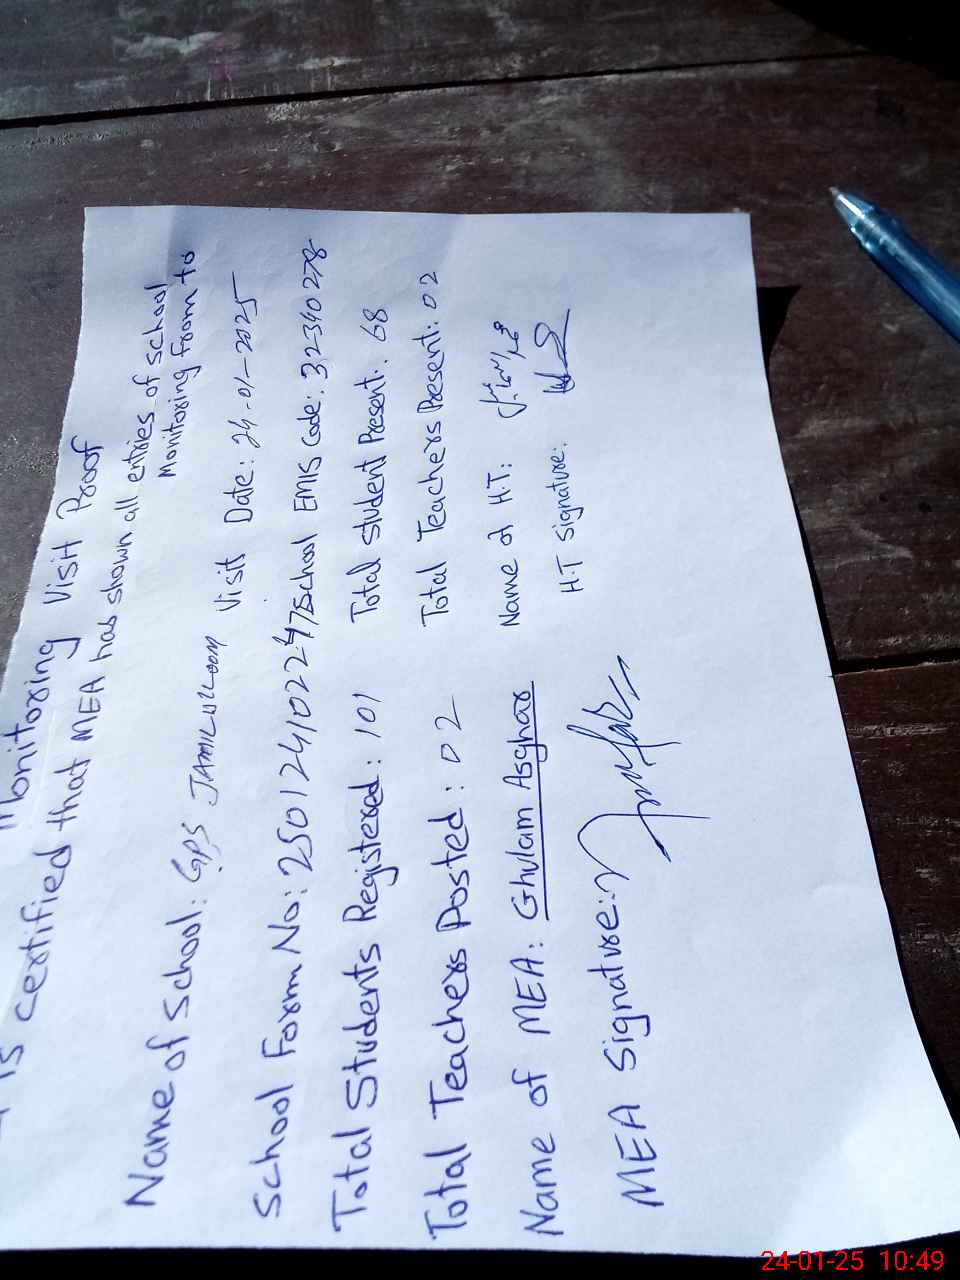 Monitoring Visit Proof
is certified that MEA has shown all entries of school
Monitoring Foorm to
Name of School: GPS Visit Date: 24-01-2025
School Foorm No: School EMIS Code: 32340278
Total Students Registered: 101 Total Student Present: 68
Total Teachers Posted: 02 Total Teachers Present: 02
Name of MEA: Ghulam Asghar Name of H.T:
MEA Signature: H.T Signature:
24-01-25 10:49